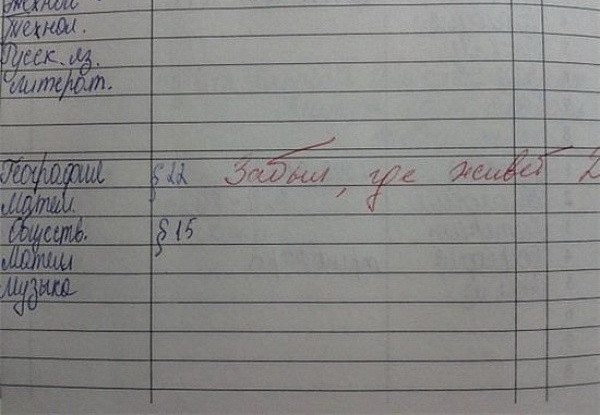 Технол.
Технол.
Русск. яз.
Литерат.
География § 22 Забыл, где живет 2
Матем.
Обществ. § 15
Матем
Музыка